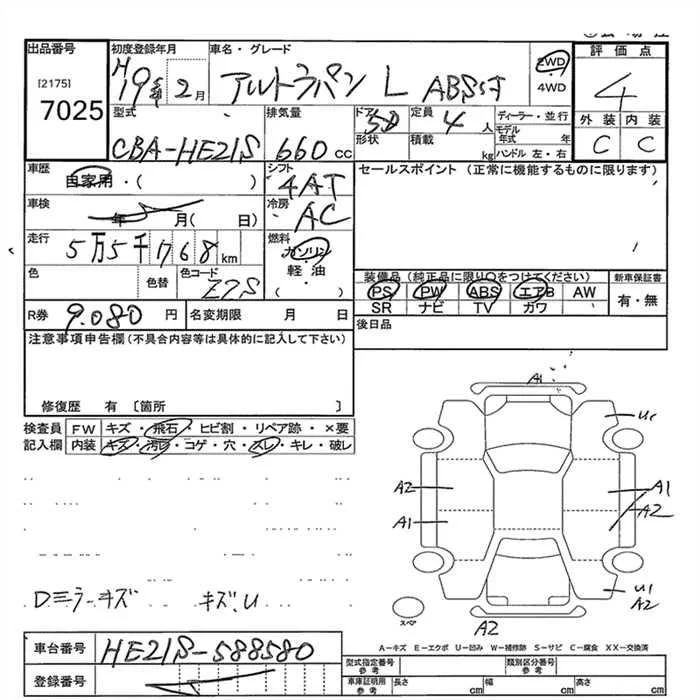 出品番号 初度登録年月 車名・グレード 評価点
[2175] H19年 2月 アルトラパン L ABS付 2WD 4
7025 4WD
型式 排気量 ドア 定員 ディーラー・並行 外装 内装
CBA-HE21S 660cc 5D 4人 モデル年式 年 C C
形状 積載 kg ハンドル 左・右
車歴 シフト セールスポイント (正常に機能するものに限ります)
自家用・( ) 4AT
車検 冷房
年 月( 日) AC
走行 燃料
5万5千768km ガソリン
色 色替 色コード 軽油 装備品(純正品に限り○をつけてください) 新車保証書
Z7S ( ) PS PW ABS エアB AW 有・無
SR ナビ TV ガワ
R券 9.080 円 名変期限 月 日 後日品
注意事項申告欄(不具合内容等は具体的に記入して下さい)
修復歴 有 〔箇所 〕
検査員 FW キズ・飛石・ヒビ割・リペア跡・×要
記入欄 内装 キズ・汚れ・コゲ・穴・スレ・キレ・破レ
A1
A2 A1
A1 A2
U1
A2
A2
スペア
Dミラーキズ キズ、U
A-キズ E-エクボ U-凹み W-補修跡 S-サビ C-腐食 XX-交換済
車台番号 HE21S-588580
登録番号
型式指定番号 参考 類別区分番号 参考
車庫証明用 参考 長さ cm 幅 cm 高さ cm